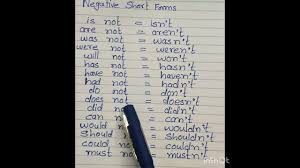 Negative Short Forms
is not = isn't
are not = aren't
was not = wasn't
were not = weren't
will not = won't
has not = hasn't
have not = haven't
had not = hadn't
do not = don't
does not = doesn't
did not = didn't
can not = can't
would not = wouldn't
should not = shouldn't
could not = couldn't
must not = mustn't